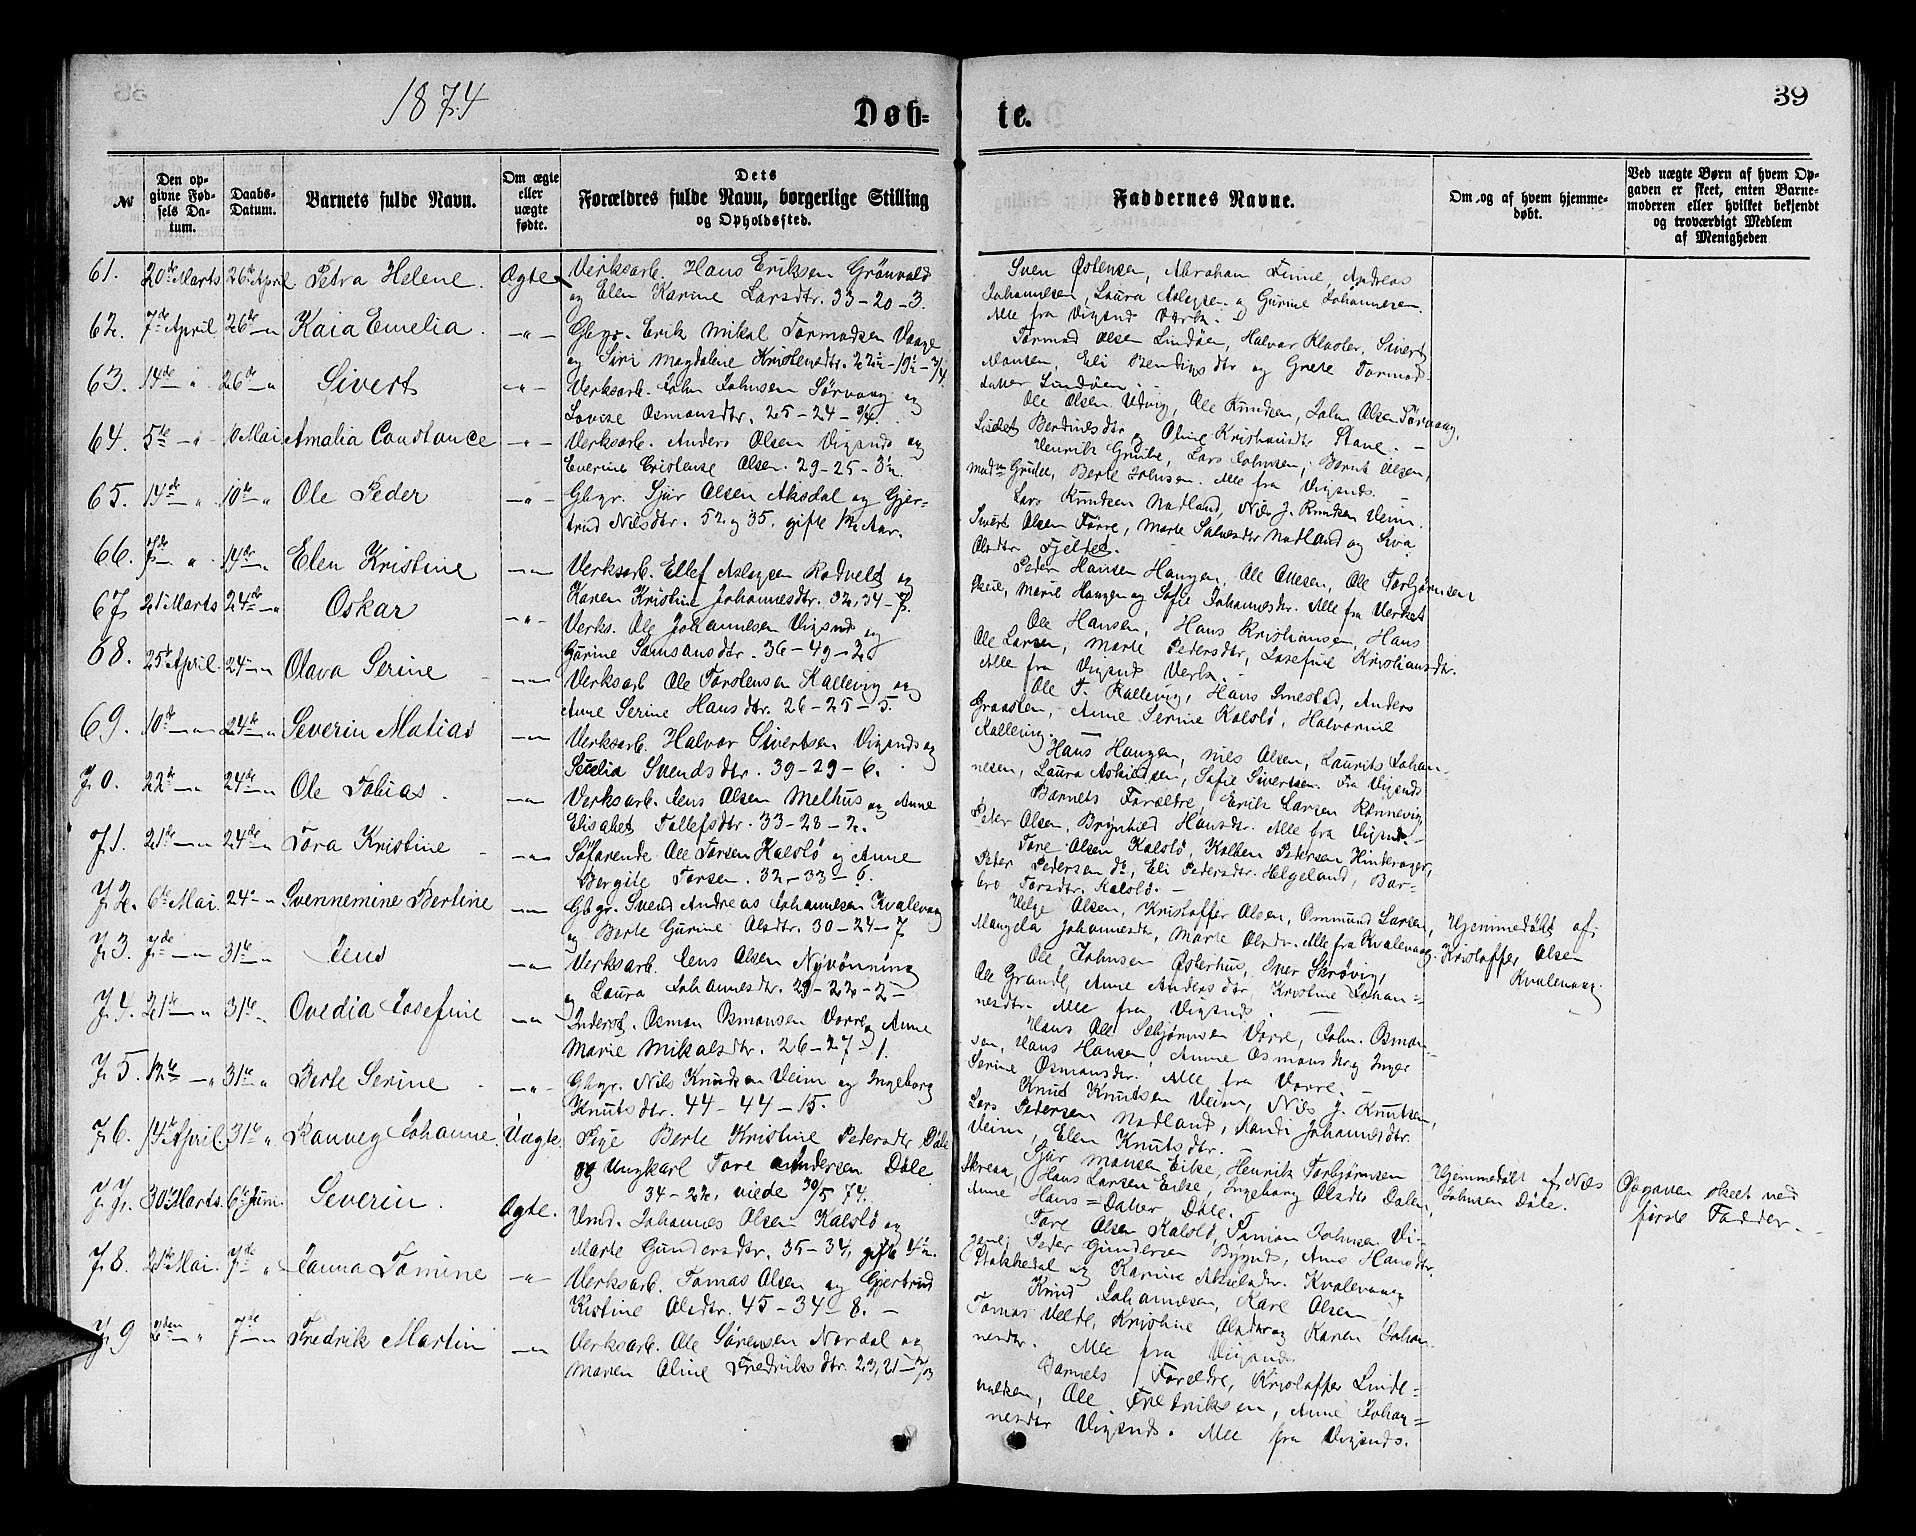 1874
Døb=
te.
39
№
Den op-
givne Fød-
sels Da-
tum.
Daabs-
Datum.
Barnets fulde Navn.
Om ægte
eller
uægte
fødte.
Dets
Forældres fulde Navn, borgerlige Stilling
og Opholdssted.
Faddernes Navne.
Om og af hvem hjemme-
døbt.
Ved uægte Børn af hvem Op-
gaven er skeet, enten Barne-
moderen eller hvilket bekjendt
og troværdigt Medlem
af Menigheden
61. 20de Marts 26de April Petra Helene. Ægte
Verksarb. Hans Eriksen Grönvold
og Elen Karine Larsdtr. 33-20-3.
Sven Østensen, Abraham Finne, Andreas
Johannesen, Laura Aslagsen og Gurine Johannesen.
Alle fra Vigsnes Værk.
62. 7de April 26de -"- Kaia Emelia. -"-
Gbgr. Erik Mikal Tormodsen Vaage
og Siri Magdalene Kristensdtr. 22½-19½-3/4.
Tormod Olsen Lindøen, Halvar Sivert
Monsen, Eli og Grete Tormod-
datter Lindøen.
63. 14de " 26de " Sivert -"-
Verksarb. John Johnsen Sørvaag og
Lovise Osmonsdtr. 25-24-3/4.
Ole Olsen Udvig, Ole Knudsen, John Olsen Førvaag,
og Oline Kristiansdtr Stane.
64. 5te -"- Mai Amalia Constance -"-
Verksarb. Anders Olsen Vigsnes og
Everine Cristense Olsen. 29-25-3½.
Henrik Grube, Lars Johnsen, Bernt Olsen,
Grube, Berte Johnsen. Alle fra Vigsnes.
65. 14de " 10de " Ole Peder -"-
Gbgr. Sjur Olsen Aksdal og Gjer-
trud Nilsdtr. 52 og 35. gifte 12 Aar.
Lars Knudsen Nodland, Nils J. Knudsen Veim.
Sivert Olsen Førre, Marte Nodland og Siva
Olsdtr. Fjeldet.
66. 7de " 14de " Elen Kristine -"-
Verksarb. Ellef Aslagsen Rodvelt og
Karen Kristine Johannesdtr. 32, 34-7.
Peder Hansen Haugen, Ole Ottesen, Ole Torbjørnsen
Skeie, Marie Haugen og Sofie Johannesdtr. Alle fra Verket
67. 21 Marts 24de -"- Oskar -"-
Verks. Ole Johannesen Vigsnes og
Gurine Samsonsdtr. 36-49-2.
Ole Hansen, Hans Kristiansen, Hans
Ole Larsen, Marte Pedersdtr, Josefine Kristiansdtr.
Alle fra Vigsnes Verk.
68. 25de April 24-" Olava Serine -"-
Verksarb Ole Torstensen Kallevig og
Anne Serine Hansdtr. 26-25-5.
Ole T. Kallevig, Hans Imestad, Anders
Graasten, Anne Serine Kalslø, Halvarine
Kallevig.
69. 10de -"- 24de " Severin Matias -"-
Verksarb. Halvor Sivertsen Vigsnes og
Secelia Svendsdtr. 39-29-6.
Hans Haugen, Nils Olsen, Laurits Johan-
nesen, Laura Sofie Sivertsen. Fra Vigsnes
70. 22de -" 24de " Ole Tobias. -"-
Verksarb. Jens Olsen Melhus og Anne
Elisabet Tollefsdtr. 33-28-2.
Barnets Forældre, Erik Larsen Rønnevig,
Peter Olsen, Brynhild Hansdtr. Alle fra Vigsnes.
71. 21de -"- 24de " Tora Kristine -"-
Søfarende Ole Torsen Kalslø og Anne
Bergite Torsen. 32-33-6.
Tore Olsen Kalslø, Kolben Pedersen Hinderager,
Peter Pedersen do, Eli Pedersdtr. Helgeland, Bar-
bro Torsdtr. Kalslø.
72. 6te Mai. 24-" Svennemine Bertine -"-
Gbgr. Svend Andreas Johannesen Kvalevaag
og Berte Gurine Olsdtr. 30-24-7
Helge Olsen, Kristoffer Olsen, Osmund Larsen,
Mangela Johannesdtr, Marte Olsdr. Alle fra Kvalevaag.
Hjemmedøbt af
Kristoffer Olsen
Kvalevaag.
73. 7de -"- 31te " Jens -"-
Verksarb. Jens Olsen Nyvønning
og Laura Johannesdtr. 29-22-2-
Ole Johnsen Østerhus, Iver Skrøvig,
Ole Grande, Anne Andersdtr, Kristine Johan-
nesdtr. Alle fra Vigsnes.
74. 21de -"- 31te " Ovedia Josefine -"-
Inderst. Osmon Osmonsen Vorre og Anne
Marie Mikalsdtr. 26-27-1.
Hans Ole Vorre, John. Osmon-
sen, Hans Hansen, Anne Osmonsdtr og Inger
Serine Osmonsdtr. Alle fra Vorre.
75. 12te -"- 31te " Berte Serine -"-
Gbgr. Nils Knudsen Veim og Ingeborg
Knutsdtr. 44-44-15.
Knud Knutsen Veim, Nils J. Knutsen,
Lars Pedersen Nodland, Johannesdtr.
Veim, Elen Knutsdtr.
76. 14de April. 31te " Ranveg Johanne. Uægte
Pige Berte Kristine Pedersdtr Dåle
og Ungkarl Tore Andersen Dåle.
34-22, viede 30/5 74.
Sjur Monsen Eike, Henrik Torbjørnsen
Skreaa, Hans Larsen Eike, Ingeborg Olsdtr Dalen,
Anne Hans=Datter Dåle.
Hjemmedøbt af Nils
Johnsen Dåle.
Opgaven skeet ved
første Fadder.
77. 30te Marts. 6te Juni. Severin. Ægte.
Umd. Johannes Olsen Kalslø og
Marte Gundersdtr. 35-34, gifte 4½.
Tore Olsen Kalslø, Simon Johnsen Vi-
gene, Peder Gundersen Bygnes, Ane Hansdtr.
Stakkedal og Karine Akselsdtr. Kvalevaag
78. 21de Mai. 7de " Janna Tomine -"-
Verksarb. Tomas Olsen og Gjertrud
Kistine Olsdtr. 45-34-8.
Knud Johannesen, Kare Olsen
Tomas Velde, Kristine Olsdtr og Karen Johan-
nesdtr. Alle fra Vigsnes
79 2den " 7de -"- Fredrik Martin -"-
Verksarb. Ole Sørensen Nordal og
Maren Oline Fredriksdtr. 23, 21-
Barnets Forældre, Kristoffer Linde-
Ole Fredriksen, Anne Johan-
nesdtr Vigsnes. Alle fra Vigsnes.